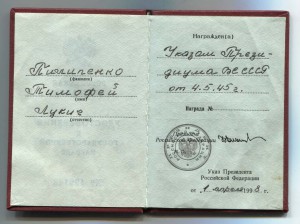 Пилипенко
(фамилия)
Тимофей
(имя)
Лукич
(отчество)
Награжден(а)
Указом Прези-
диума ВС СССР
от 4.5.45 г.
Награда №
Российской Федерации
Указ Президента
Российской Федерации
от 1 апреля 1998 г.